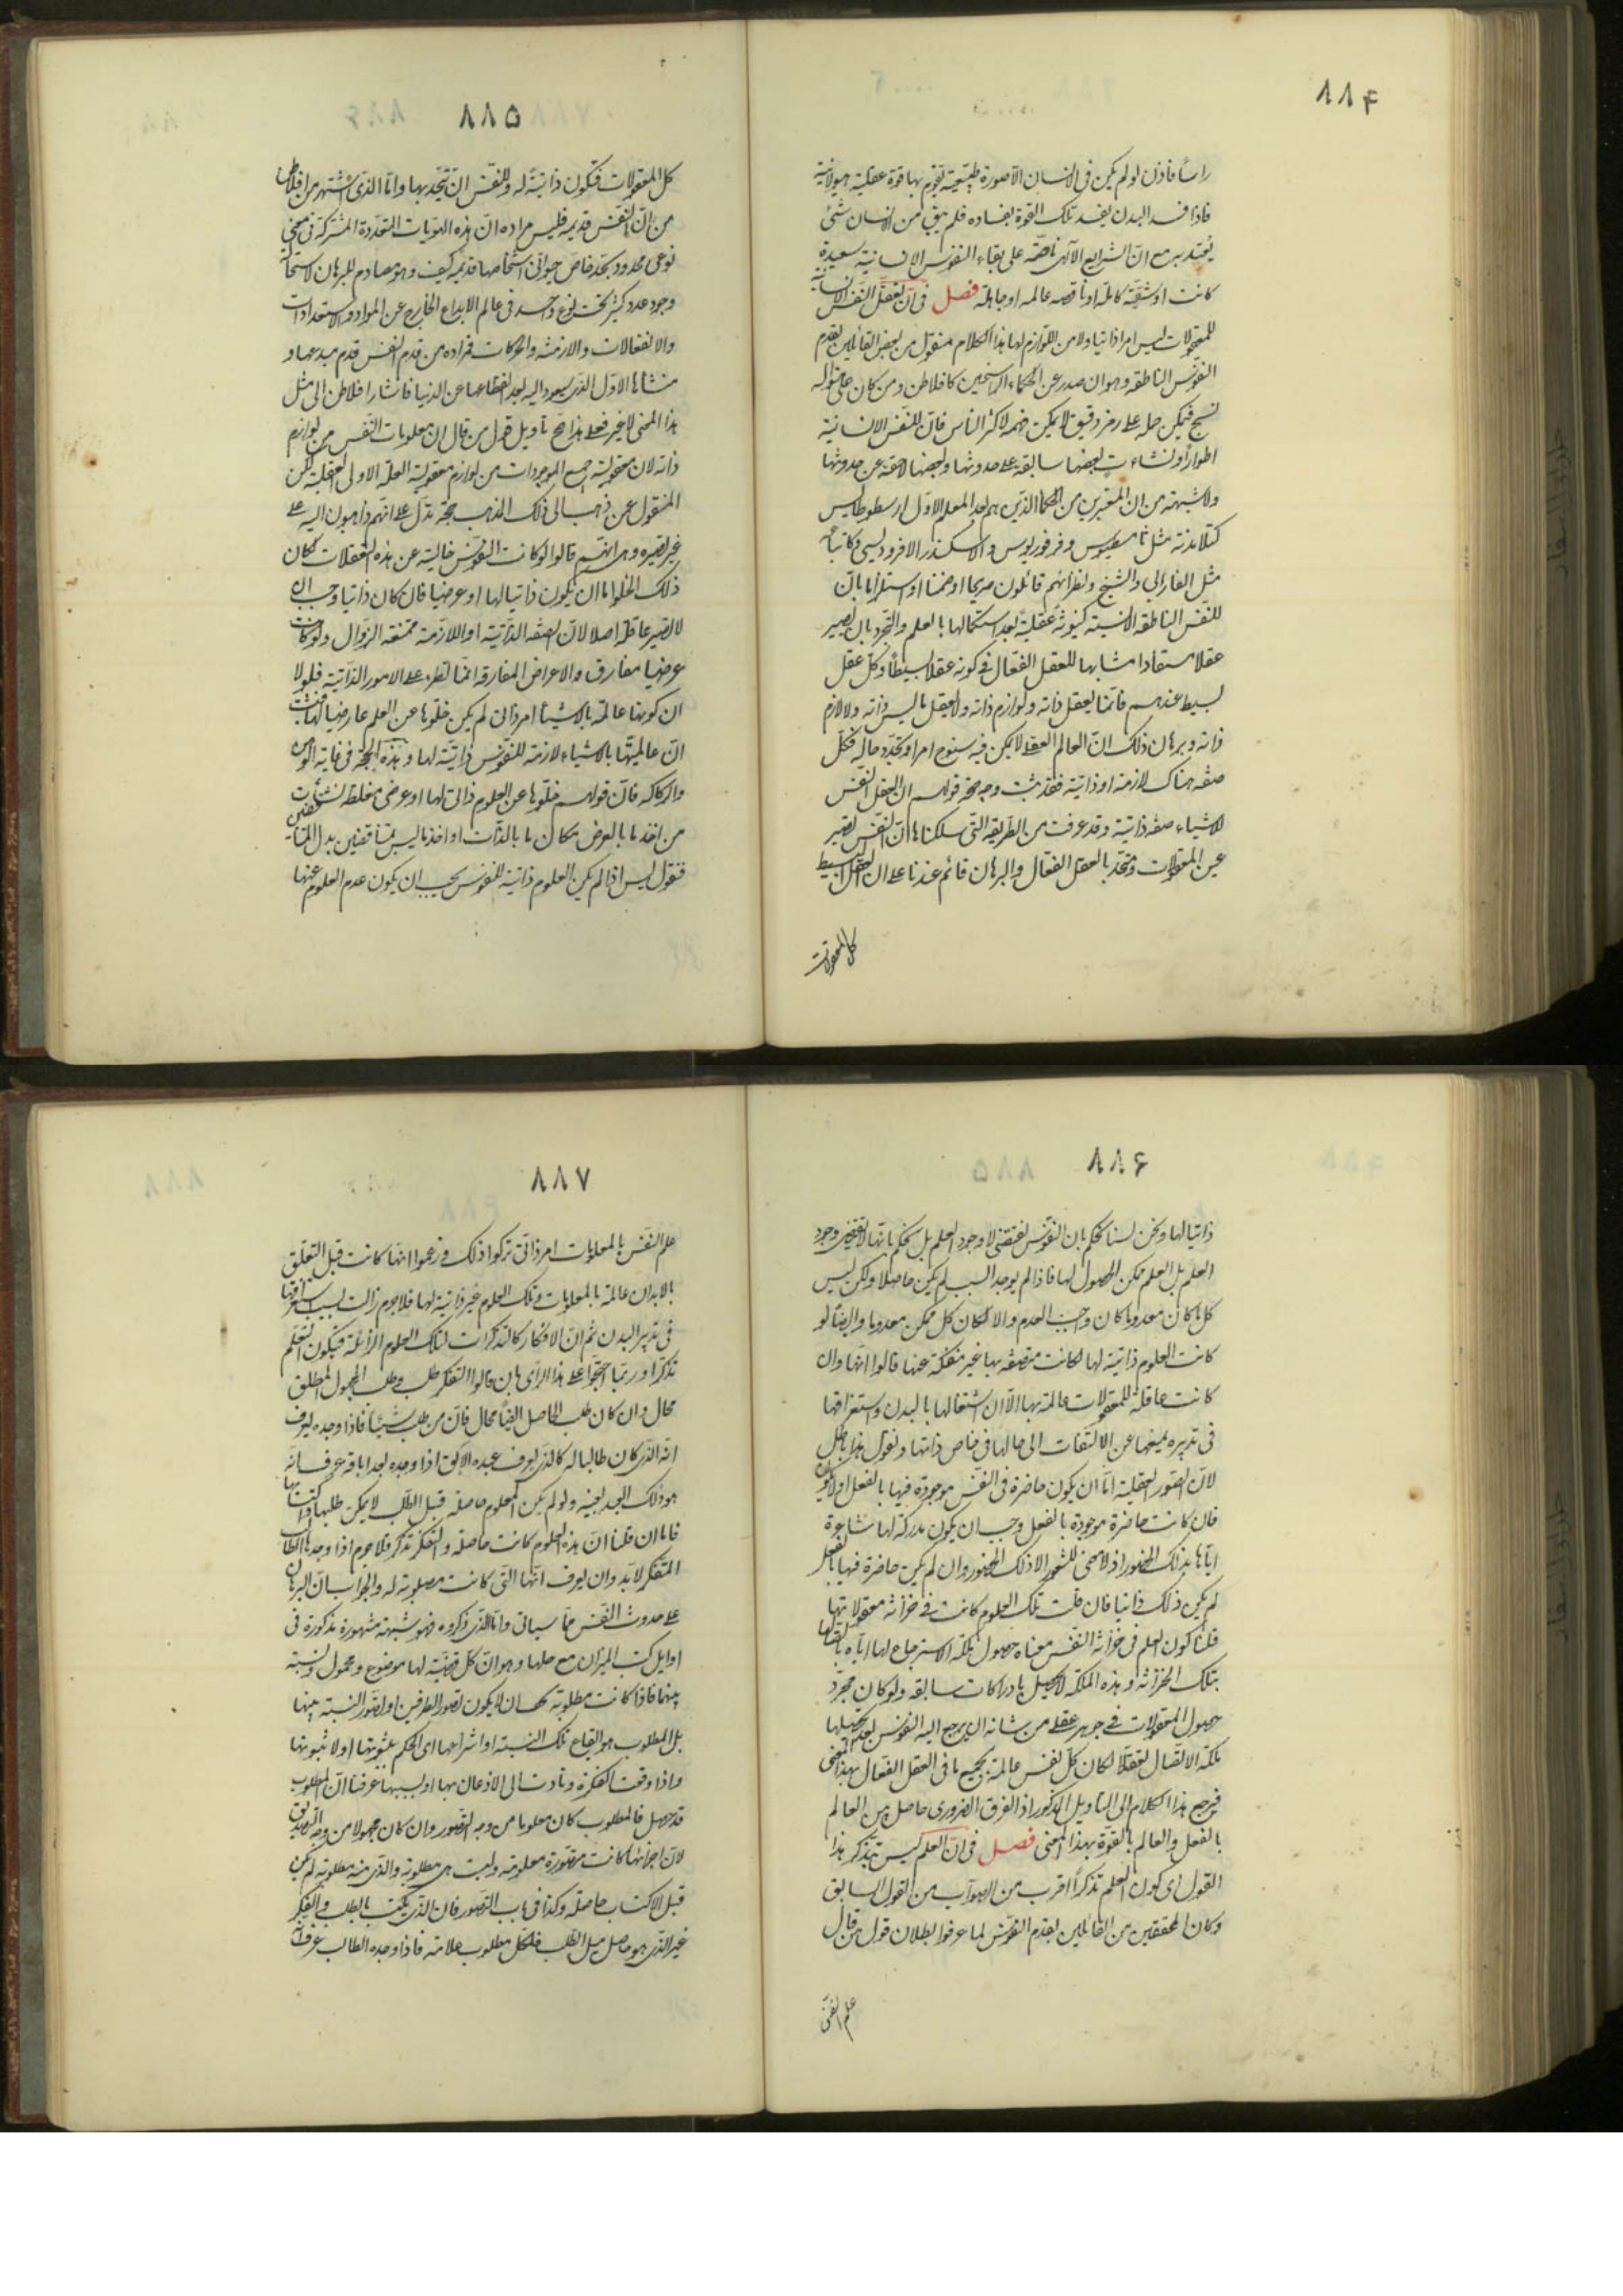 ۸۸۴
راسا فاذن لو لم يكن فى الانسان الا صورة طبيعية تقوم بها قوة عقلية هيولانية
فاذا فسد البدن يفسد تلك القوة بفساده فلم يبق من الانسان شئ
يعتد به مع ان الشرايع الآلهى ناصة على بقاء النفوس الانسانية سعيدة
كانت او شقية كاملة او ناقصه عالمه او جاهلة فصل فى ان تعقل النفس الانسانية
للمعقولات ليس امرا ذاتيا ولا من اللوازم لها هذا الكلام منقول من بعض القائلين بقدم
النفوس الناطقه وهو ان صدر عن الحكماء الراسخين كافلاطن ومن كان على منواله
نسج فيمكن حمله على رمز دقيق لا يمكن فهمه لاكثر الناس فان للنفس الانسانية
اطوارا ونشاءت بعضها سابقة على حدوثها وبعضها لاحقة عن حدوثها
ولا شبهة من ان المعتبرين من الحكما الذين هم بعد المعلم الاول ارسطوطاليس
كتلامذته مثل ثامسطيوس وفرفوريوس والاسكندر الافروديسى وكاتباعه
مثل الفارابى والشيخ ونظرائهم قائلون صريحا او ضمنا او استلزاما بان
للنفس الناطقه الانسية كينونة عقلية بعد استكمالها بالعلم والتجرد بان تصير
عقلا مستفادا مشابها للعقل الفعال فى كونه عقلا بسيطا وكل عقل
بسيط عندهم فانما يعقل ذاته ولوازم ذاته ولا يعقل ما ليس ذاته ولا لازم
ذاته وبرهان ذلك ان العالم العقلى لا يمكن فيه سنوح امر او تجدد حاله فكل
صفه هناك لازمة او ذاتية فقد ثبت وجه صحة قولهم ان العقل النفس
للاشياء صفة ذاتية وقد عرفت من الطريقه التى سلكناها ان النفس تصير
عين المعقولات وتتحد بالعقل الفعال والبرهان قائم عندنا على ان العقل البسيط
كل المعقولات
۸۸۵
كل المعقولات فتكون ذاتية له وللنفس ان تتحد بها واما الذى اشتهر من افلاطن
من ان النفس قديمه فليس مراده ان هذه الهويات المتعددة المشتركة فى معنى
نوعى محدود بحد خاص حيوانى اشخاصها قديمه كيف وهو مصادم للبرهان لاستحالة
وجود عدد كثير تحت نوع واحد فى عالم الابداع الخارج عن المواد والاستعدادات
والانفعالات والازمنة والحركات فمراده من قدم النفس قدم مبدعها و
منشاها الاول الذى سيعود اليه بعد انقطاعها عن الدنيا فاشار افلاطن الى مثل
هذا المعنى لا غير فعلى هذا صح تاويل قول من قال ان معلومات النفس من لوازم
ذاته لان معقولية جميع الموجودات من لوازم معقولية العلة الاولى العقلية لكن
المنقول عن ذهب الى ذلك المذهب حجة تدل على انهم ذاهبون اليه على
غير بصيره وهى انهم قالوا لو كانت النفوس خالية عن هذه التعقلات لكان
ذلك الخلو اما ان يكون ذاتيا لها او عرضيا فان كان ذاتيا وجب ان
لا تصير عاقلة اصلا لان الصفه الذاتية او اللازمة ممتنعة الزوال ولو كانت
عرضيا مفارق والاعراض المفارقة انما تطرء على الامور الذاتية فلولا
ان كونها عالمة بالاشيا امر ذاتى لم يكن خلوها عن العلم عارضيا لها فثبت
ان عالميتها بالاشياء لازمة للنفوس ذاتية لها وهذه الحجة فى غاية الوهن
والركاكة فان قولهم خلوها عن العلوم ذاتى لها او عرضى مغلطة نشات
من اخذ ما بالعرض مكان ما بالذات او اخذ ما ليس بمتناقضين بدل المتناقضين
فنقول ليس اذا لم يكن العلوم ذاتية للنفوس يجب ان يكون عدم العلوم عنها
۸۸۶
ذاتيا لها ونحن لسنا نحكم بان النفوس تقتضى لا وجود العلم بل نحكم بانها لا تقتضى وجود
العلم بل العلم ممكن الحصول لها فاذا لم يوجد السبب لم يكن حاصلا ولكن ليس
كل ما كان معدوما كان واجب العدم والا لكان كل ممكن معدوما وايضا لو
كانت العلوم ذاتية لها لكانت متصفة بها غير منفكة عنها قالوا انها وان
كانت عاقلة للمعقولات عالمة بها الا ان اشتغالها بالبدن واستغراقها
فى تدبيره يمنعها عن الالتفات الى حالها فى خاص ذاتها ونقول هذا باطل
لان الصور العقلية اما ان يكون حاضرة فى النفس موجودة فيها بالفعل او لا يكون
فان كانت حاضرة موجودة بالفعل وجب ان يكون مدركة لها شاعرة
اياها بذلك الحضور اذ لا معنى للشعور الا ذلك الحضور وان لم يكن حاضرة فيها بالفعل
لم يكن ذلك ذاتيا فان قلت تلك العلوم كانت فى خزانة معقولاتها
قلنا كون العلم فى خزانة النفس معناه حصول ملكة الاسترجاع لها اياه باتصالها
بتلك الخزانة وهذه الملكة لا تحصل بادراكات سابقة ولو كان مجرد
حصول المعقولات فى جوهر عقلى من شانه ان يرجع اليه النفوس بعد تحصيلها
ملكة الاتصال تعقلا لكان كل نفس عالمة بجميع ما فى العقل الفعال بهذا المعنى
فيرجع هذا الكلام الى التاويل المذكور اذ الفرق الضرورى حاصل بين العالم
بالفعل والعالم بالقوة بهذا المعنى فصل فى ان العلم ليس بتذكر هذا
القول اى كون العلم تذكرا اقرب من الصواب من القول السابق
وكان المحققين من القائلين بقدم النفوس لما عرفوا بطلان قول من قال
علم النفس
۸۸۷
علم النفس بالمعلومات امر ذاتى تركوا ذلك وزعموا انها كانت قبل التعلق
بالابدان عالمة بالمعلومات وتلك العلوم غير ذاتية لها فلا جرم زالت بسبب استغراقها
فى تدبير البدن ثم ان الافكار كالتذكرات لتلك العلوم الزائلة فيكون التعلم
تذكرا وربما احتجوا على هذا الراى بان قالوا التفكر طلب وطلب المجهول المطلق
محال وان كان طلب الحاصل ايضا محال فان من طلب شيئا فاذا وجده يعرف
انه الذى كان طالبا له كالذى يعرف عبده الآبق اذا وجده بعد اباقه عرف انه
هو ذلك العبد بعينه ولو لم يكن العلوم حاصلة قبل الطلب لا يمكن طلبها واكتسابها
فاما ان قلنا ان هذه العلوم كانت حاصلة والتفكر تذكر فلا جرم اذا وجدها الطالب
المتفكر لا بد وان يعرف انها التى كانت مطلوبة له والجواب ان البرهان
على حدوث النفس مما سياتى واما الذى ذكروه فهو شبهة مشهورة مذكورة فى
اوايل كتب الميزان مع حلها وهو ان كل قضية لها موضوع ومحمول ونسبة
بينهما فاذا كانت مطلوبة يجب ان لا يكون تصور الطرفين او تصور النسبة بينها
بل المطلوب هو ايقاع تلك النسبة او انتزاعها اى الحكم بثبوتها او لا ثبوتها
واذا وقعت الفكرة وتادت الى الاذعان بها او بسلبها عرفنا ان المطلوب
قد حصل فالمطلوب كان معلوما من وجه التصور وان كان مجهولا من وجه التصديق
لان اجزائها كانت متصورة معلومة وليست هى مطلوبة والذى منه مطلوبة لم يكن
قبل الاكتساب حاصلة وكذا فى باب التصور فان الذى يكتسب بالطلب والفكر
غير الذى هو حاصل قبل الطلب فلكل مطلوب علامة فاذا وجده الطالب عرف انه